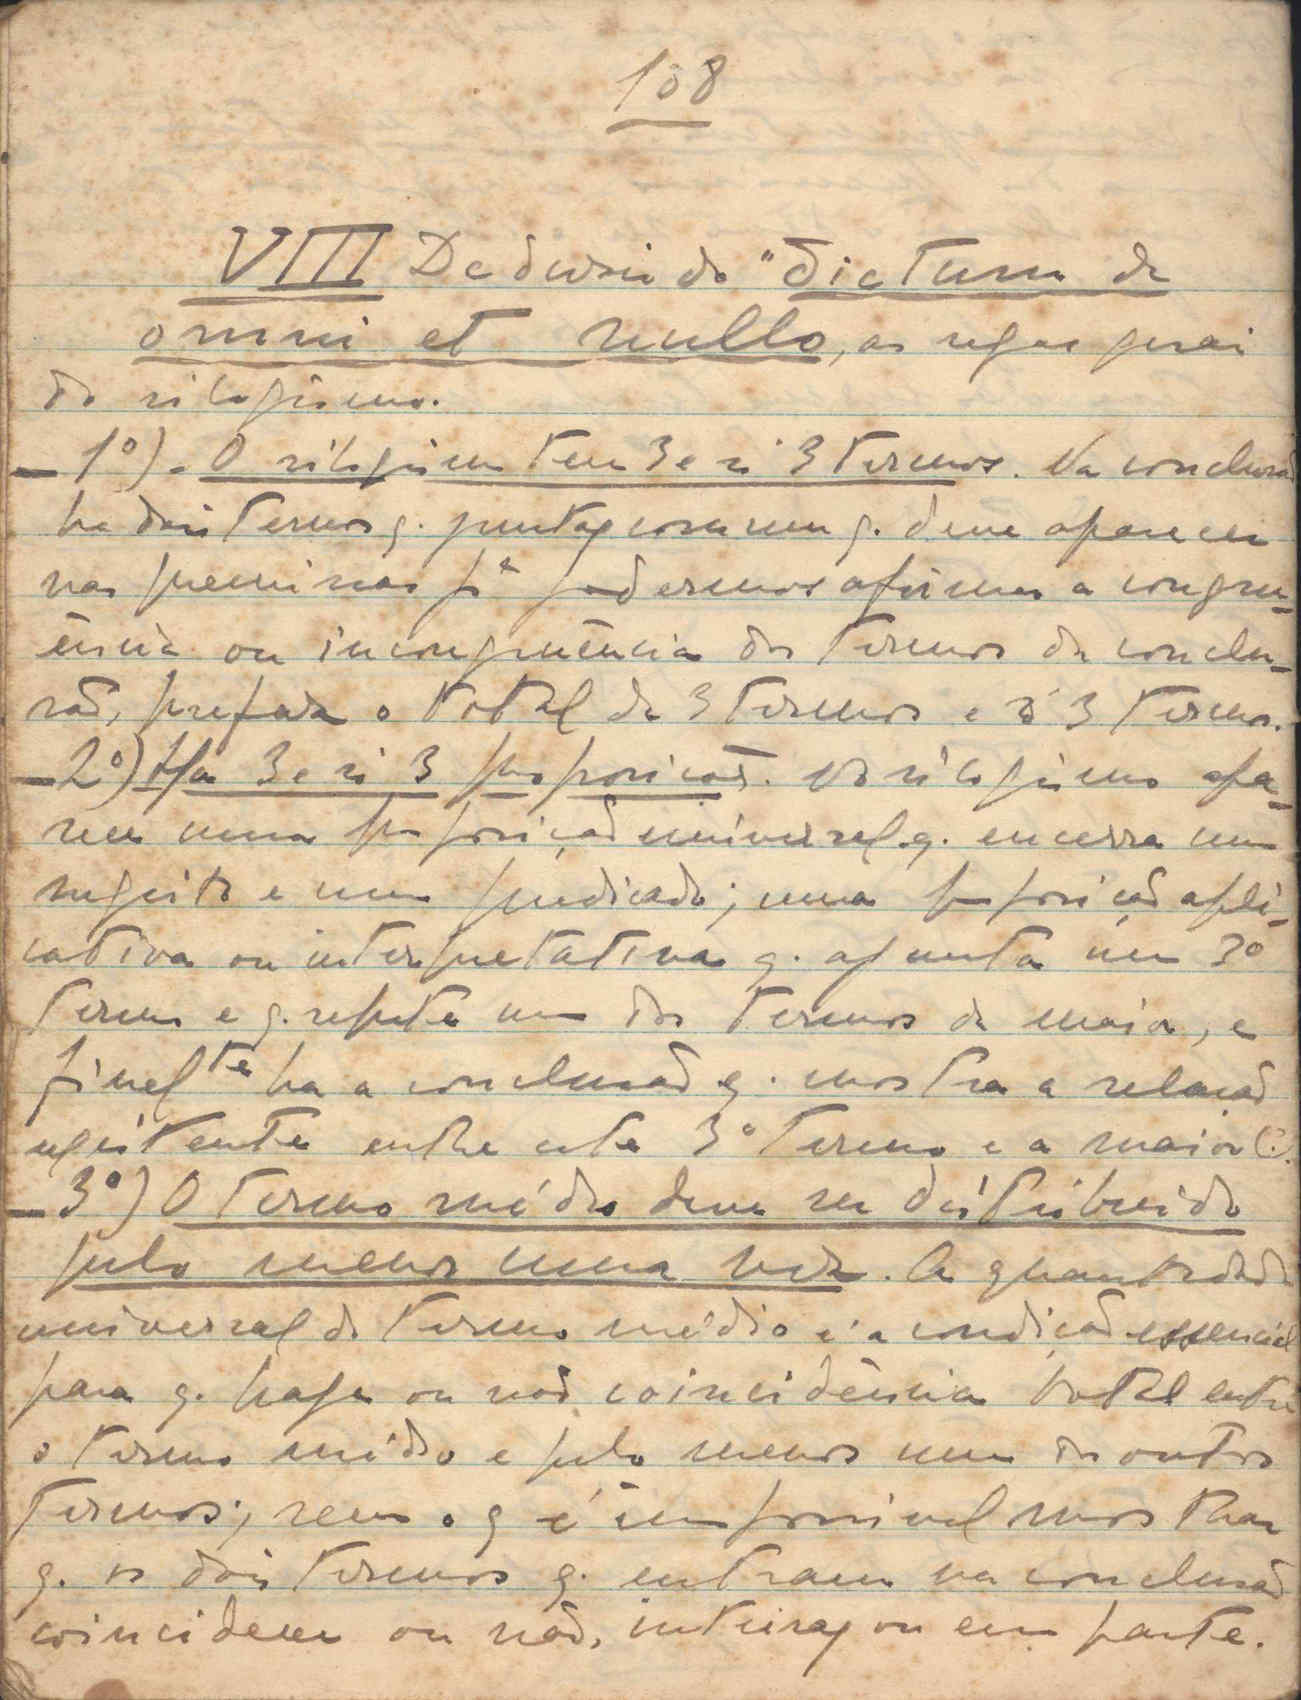 108
VIII Deduzir do "dictum de
omni et nullo, as regas gerai
do silogismo.
1º) - O silogismo tem 3 e só 3 termos. Na conclusão
ha dois termos q. juntos com um q. deve aparecer
nas premissas pª podermos afirmar a congru-
ência ou incongruência dos termos da conclu-
são, perfaz o total de 3 termos e só 3 termos.
2º) Ha 3 e só 3 proposições. No silogismo apa-
rece uma proposição universal q. encerra um
sujeito e um predicado; uma proposição apli-
cativa ou interpretativa q. ajunta um 3º
termo e q. repete um dos termos da maior, e
finalte ha a conclusão q. mostra a relação
existente entre este 3º termo e a maior (.).
3º) O termo médio deve ser distribuido
pelo menos uma vez. A quantidade
universal do termo médio é a condição essencial
para q. haja ou não coincidência total entre
o termo médio e pelo menos um dos outros
termos; sem o q é impossivel mostrar
q. os dois termos q. entram na conclusão
coincidem ou não, inteiros ou em parte.